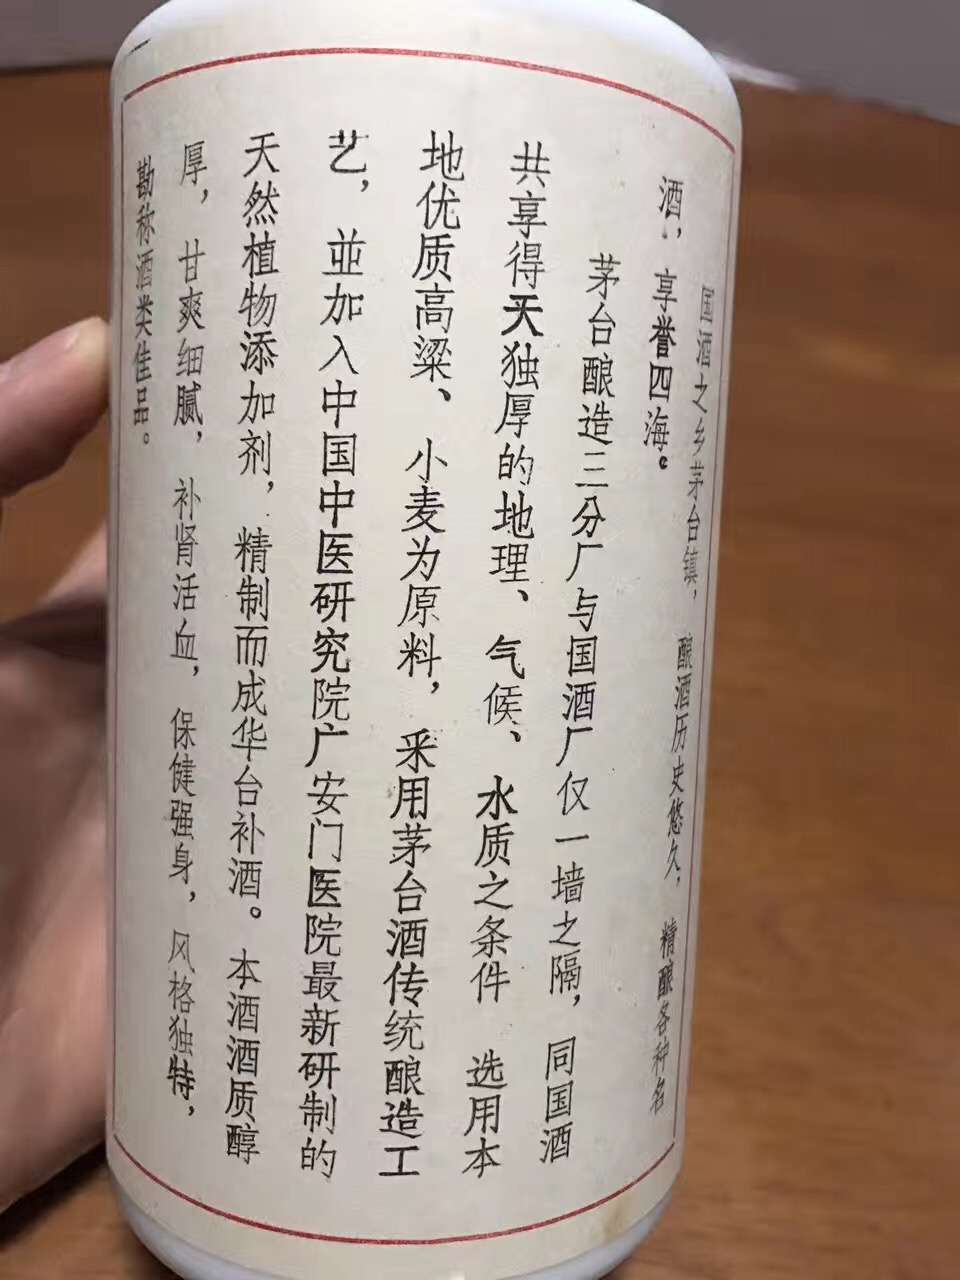 国酒之乡茅台镇，酿酒历史悠久，精酿各种名
酒，享誉四海。
茅台酿造三分厂与国酒厂仅一墙之隔，同国酒
共享得天独厚的地理、气候、水质之条件 选用本
地优质高粱、小麦为原料，采用茅台酒传统酿造工
艺，並加入中国中医研究院广安门医院最新研制的
天然植物添加剂，精制而成华台补酒。本酒酒质醇
厚，甘爽细腻，补肾活血，保健强身，风格独特，
勘称酒类佳品。